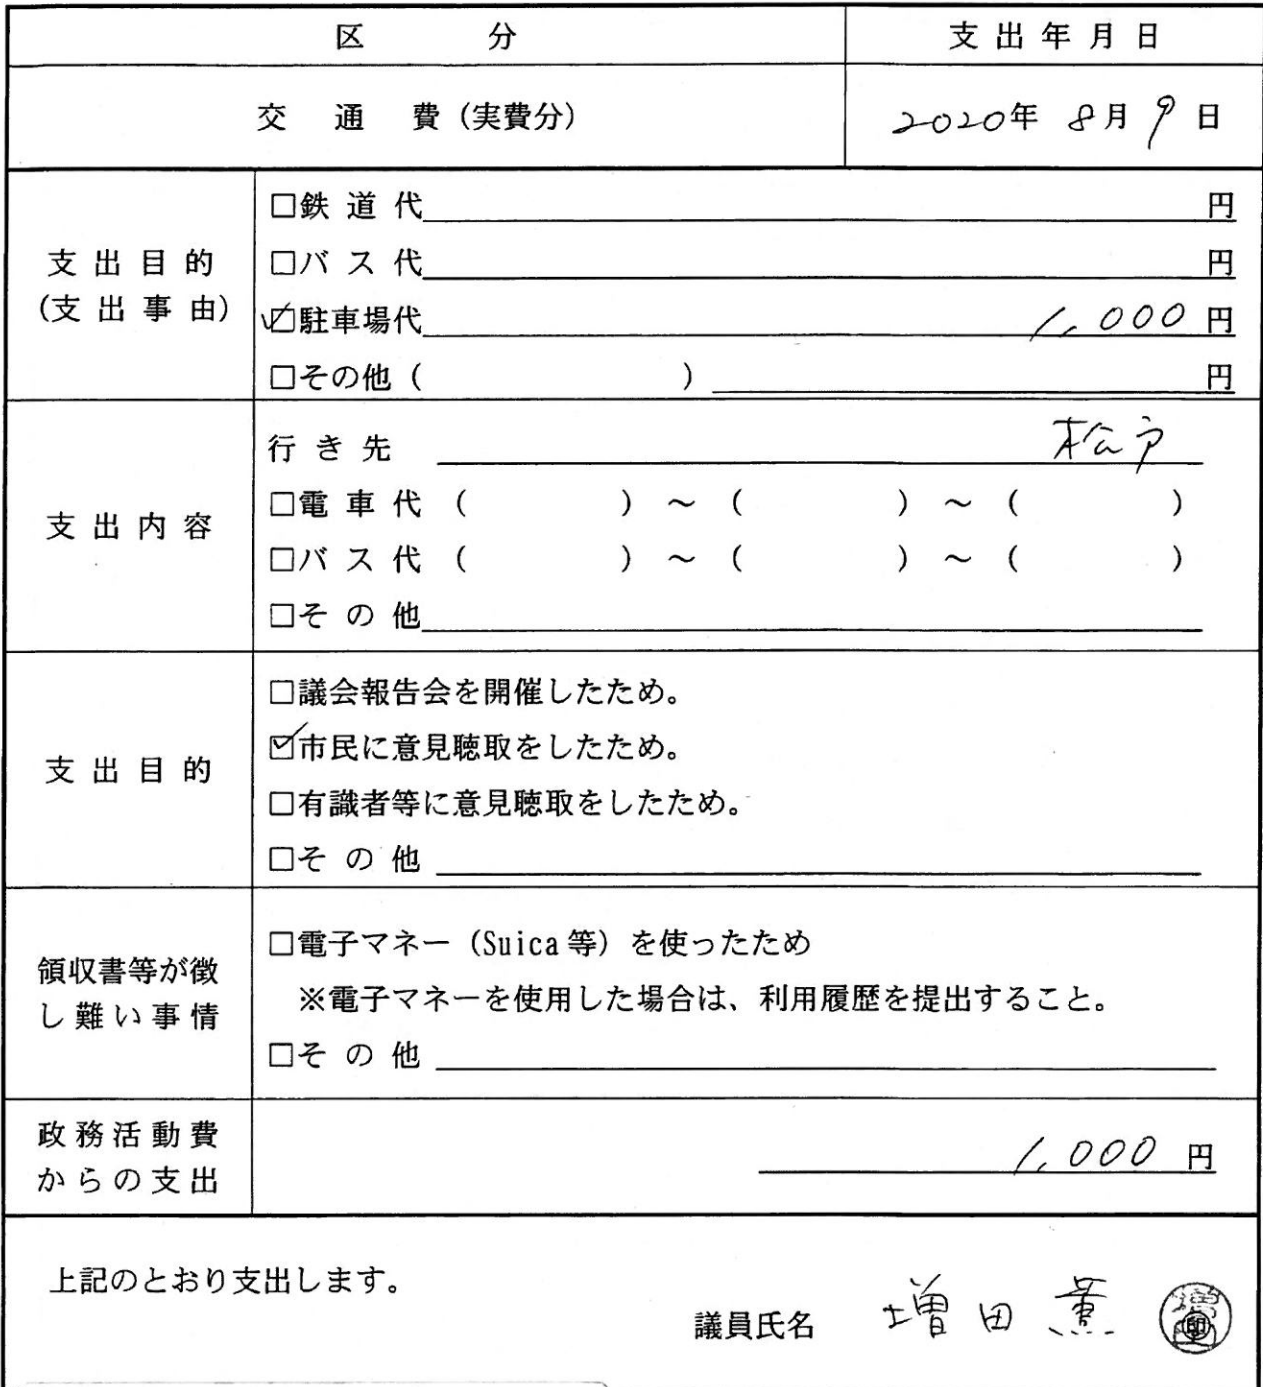 区 分 支出年月日
交通費（実費分） 2020年 8月 9日
支出目的
（支出事由）
□鉄道代 円
□バス代 円
☑駐車場代 1,000円
□その他（ ） 円
支出内容
行き先 松戸
□電車代（ ）～（ ）～（ ）
□バス代（ ）～（ ）～（ ）
□その他
支出目的
□議会報告会を開催したため。
☑市民に意見聴取をしたため。
□有識者等に意見聴取をしたため。
□その他
領収書等が徴
し難い事情
□電子マネー（Suica等）を使ったため
※電子マネーを使用した場合は、利用履歴を提出すること。
□その他
政務活動費
からの支出
1,000円
上記のとおり支出します。
議員氏名 増田 薫 印